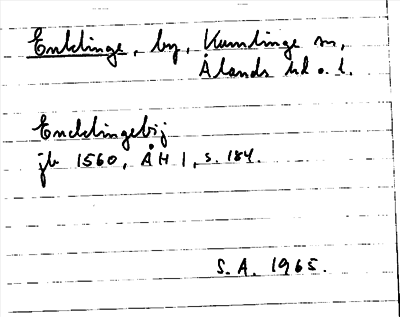 Enklinge, by, Kumlinge sn,
Ålands hd o. l.
Encklingebÿ
jb 1560, ÅH 1, s. 184.
S.A. 1965.